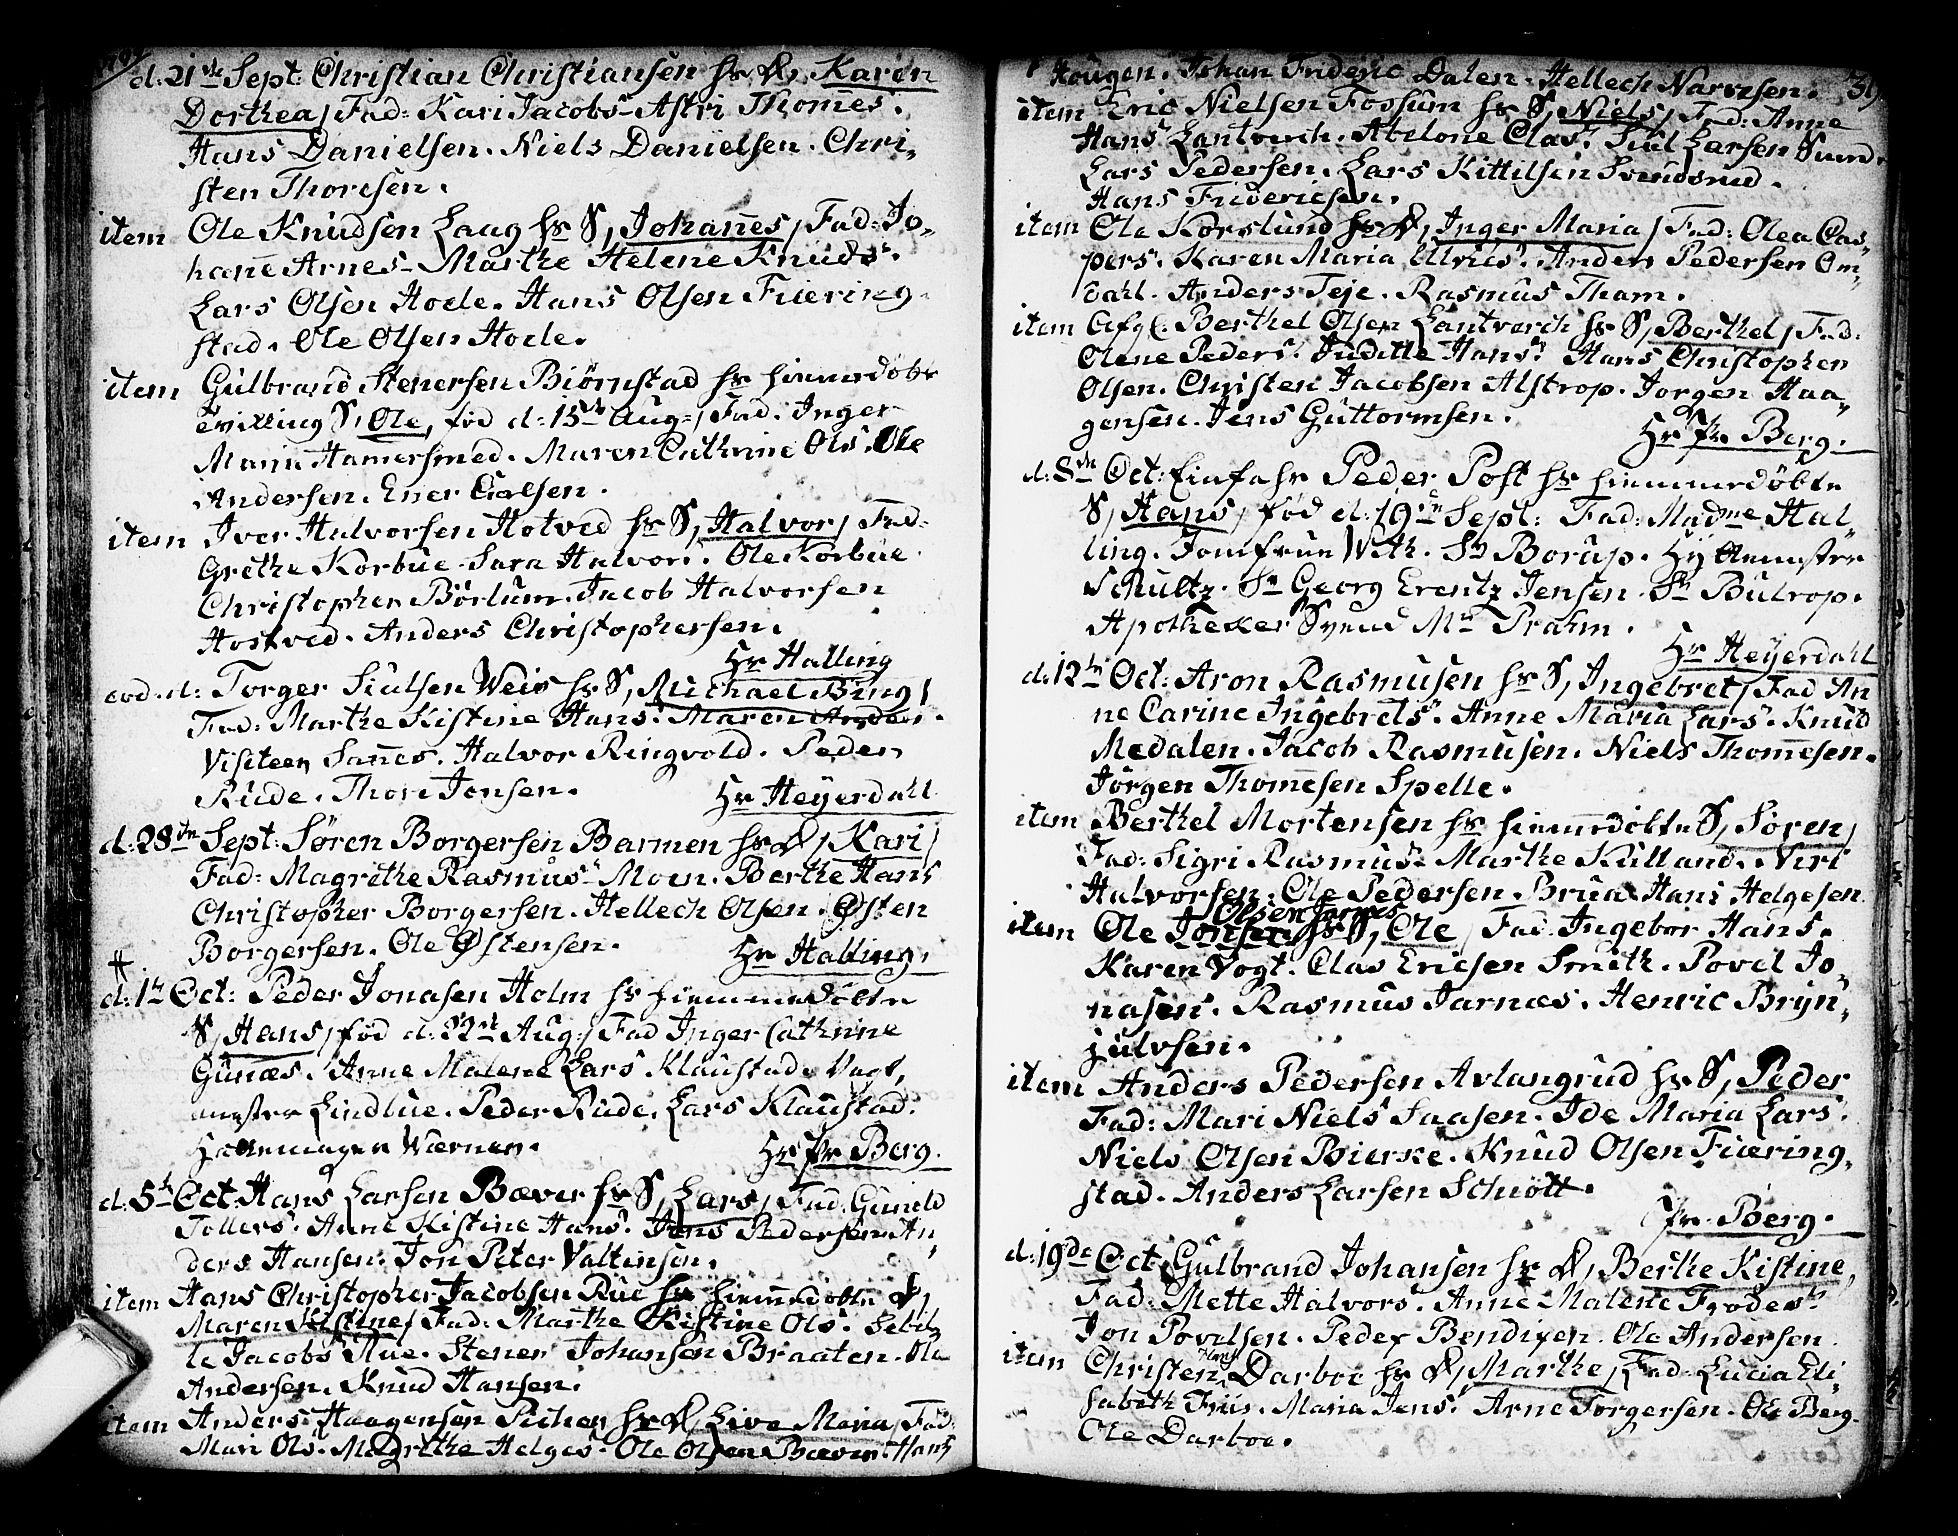 d: 21de Sept: Christian Christiansen hr D, Karen
Dorthea/ Fad: Kari Jacobs- Astri Thomes.
Hans Danielsen. Niels Danielsen. Chri-
sten Thoresen.
item Ole Knudsen Laag hr S, Johañes/ Fad: Jo-
hañe Arnes- Marthe Helene Knuds.
Lars Olsen Hoele. Hans Olsen Fiering-
stad. Ole Olsen Hoele.
item Gulbrand Stenersen Biørnstad hr hiemedöbte
tvilling S, Ole, föd d: 15de Aug:/ Fad. Inger
Maria Hamersmed. Maren Cathrine Ols. Ole
Andersen. Ener Carlsen.
item Iver Halvorsen Hotved hr S, Halvor/ Fad:
Grethe Korbue. Sara Halvors. Ole Korbue
Christopher Börlum. Jacob Halvorsen
Hostved. Anders Christophersen.
Hr Halling
eod. d: Torger Siulsen Weis hr S, Michael Bing/
Fad: Marthe Kistine Hans. Maren Anders.
Visiteen Sañes. Halvor Ringvold. Peder
Rude. Thor Jonsen.
Hr Heyerdahl
d: 28de Sept: Søren Borgersen Barmen hr D, Kari/
Fad: Magrethe Rasmus- Moen. Berthe Hans
Christopher Borgersen. Hellech Olsen. Østen
Borgersen. Ole Østensen.
Hr Halling.
d: 1te Oct: Peder Jonasen Holm hr hiemmedöbte
S, Hans, föd d: 22de Aug:/ Fad Inger Cathrine
Gunæs. Anne Malene Lars Klaustad. Vagt,
mester Lindlue. Peder Rude. Lars Klaustad.
Hattemager Wærner.
Hr pr Berg.
d: 5te Oct Hans Larsen Bæver hr S, Lars/ Fad: Gunild
Tollers. Anne Kistine Hans. Jens Pedersen. An-
ders Hansen. Jon Peter Valtinsen.
item Hans Christopher Jacobsen Rue hr hiemedöbte D,
Maren Kistine/ Fad: Marthe Kistine Ols. Sebil-
le Jacobs Rue. Stener Johansen Braaten. Ole
Andersen. Knud Hansen.
item Anders Haagensen hr D, Live Maria/ Fad:
Mari Ols. Magrethe Helges. Ole Olsen Bæver. Hans
Hougen. Johan Frideric Dalen. Hellech Narvesen.
item Eric Nielsen Fossum hr S, Niels/ Fad: Anne
Hans Lantverch. Abelone Clas. Siul Larsen Sund.
Lars Pedersen. Lars Kittilsen Svendsrud.
Hans Fridericsen.
item Ole Korslund hr D, Inger Maria/ Fad: Olea Cas-
pers. Karen Maria Ulrics. Anders Pedersen Om-
dahl. Anders Teje. Rasmus Tham.
item Afgl. Berthel Olsen Lantverch hr S, Berthel/ Fad:
Olene Peders. Juditte Hans. Hans Christopher
Olsen. Christen Jacobsen Alstrop. Jorgen Haa-
gensen. Jens Guttormsen.
Hr Pr. Berg.
d: 8de Oct: Einfahr Peder Post hr hiemmedöbte
S, Hans, föd d: 19de Sept: Fad: Madme Hal-
ling. Jomfrue With. Sr Borup. Hyttemester
Schultz. Sr Georg Erentz Jensen. Sr Bulrop.
Apotheker Svend Mr Prahm.
Hr Heyerdahl
d: 12te Oct: Aron Rasmusen hr S, Ingebret/ Fad An
ne Carine Ingebrets. Anne Maria Lars. Knud
Medalen. Jacob Rasmusen. Niels Thomesen.
Jörgen Thomesen Spelle.
item Berthel Mortensen hr hiemedöbte S, Sören/
Fad: Sigri Rasmus. Marthe Kulland. Niri
Halvorsen. Ole Pedersen. Brua. Hans Helgesen.
Olsen Jarnes
item Ole Jonsen hr S, Ole/ Fad: Ingebor Hans.
Karen Vogt. Clas Ericsen Smith. Povel Jo-
nasen. Rasmus Jarnæs. Henric Bryn-
julvsen.
item Anders Pedersen Avlangrud hr S, Peder
Fad: Mari Niels Saasen. Ide Maria Lars.
Niels Olsen Bierke. Knud Olsen Fiering-
stad. Anders Larsen Schiött.
Pr. Berg.
d: 19de Oct, Gulbrand Johansen hr D, Berthe Kistine,
Fad: Mette Halvors. Anne Malene Froders.
Jon Povelsen. Peder Bendixen. Ole Andersen
Hans
item Christen Darboe hr D, Marthe/ Fad: Lucia Eli-
sabeth Friis. Maria Jens. Arne Torgersen. Ole Berg.
Ole Darboe.